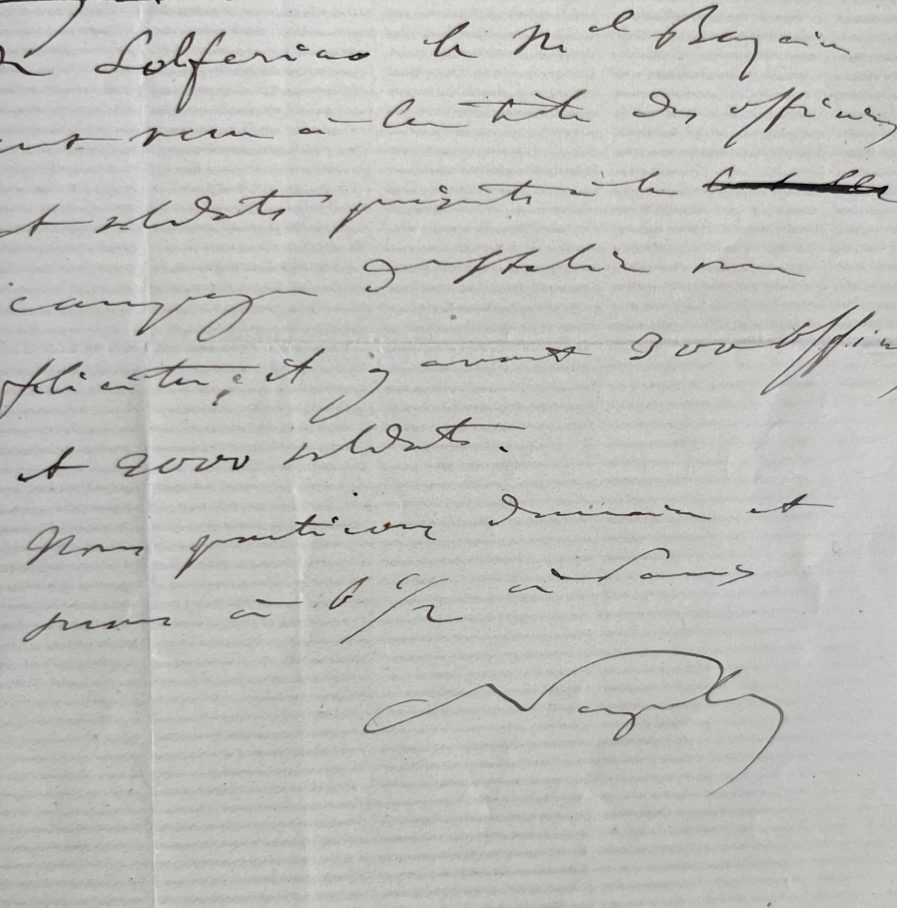 Solferino le Mal Bazain
est venu à la tête des officiers
et soldats présents à la
campagne d'Italie me
féliciter, et y avait 300 offici
et 2000 soldats.
Nous partirons demain et
serons à 6 1/2 à Paris
Napoléon